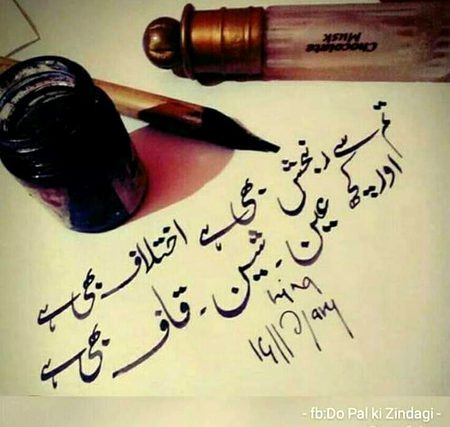 Chocolate
Musk
تم سے رنجش بھی ہے اختلاف بھی ہے
اور کچھ عین۔ شین۔ قاف بھی ہے
- fb:Do Pal ki Zindagi -